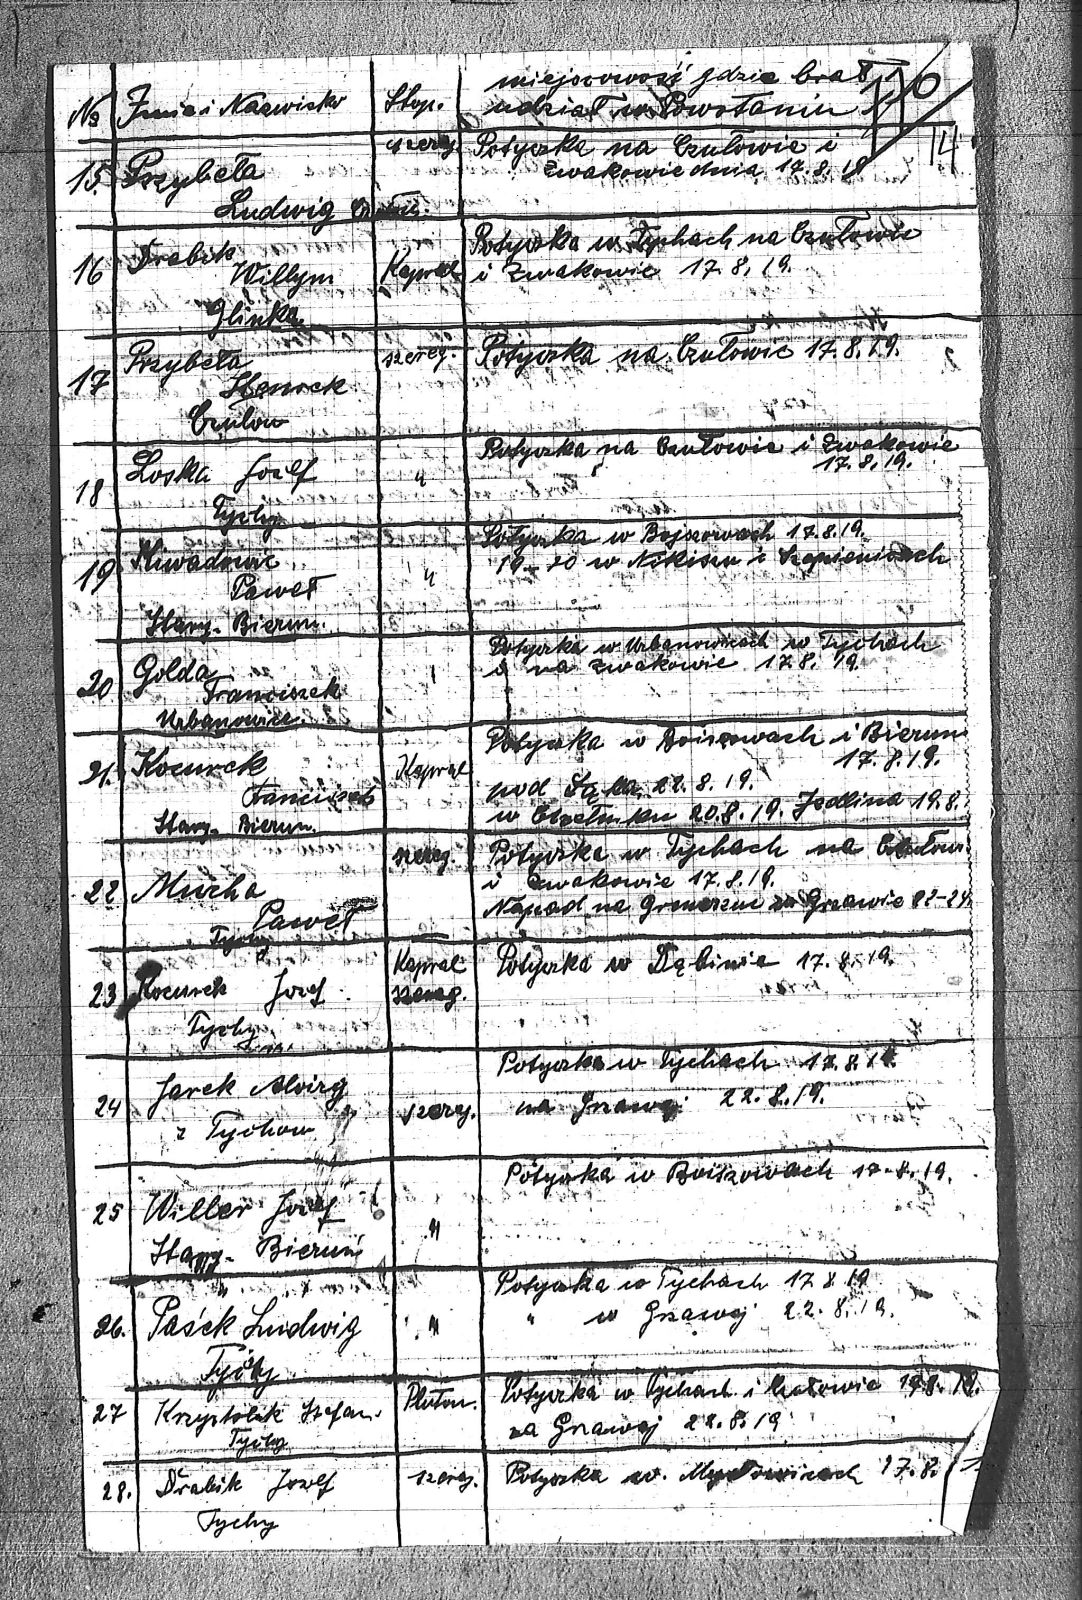 No Imię i Nazwisko Stop. miejscowość gdzie brał
udział w Powstaniu
14
15. Przybeła szereg. Potyczka na Czułowie i
Zwakowie dnia 17.8.19
Ludwig
16 Drabik Potyczka w Tychach na Czułowie
Willym Kapral i Zwakowie 17.8.19.
Glinka
17 Przybeła szereg. Potyczka na Czułowie 17.8.19.
Henrek
Czułow
18 Loska Jozef " Potyczka na Czułowie i Zwakowie
17.8.19.
Tychy
19 Potyczka w Bojszowach 17.8.19.
Paweł " 19-20 w Nikiszu i Szopienicach
Stary-Bierun.
20 Golda Potyczka w Urbanowicach w Tychach
Franciszek i na Zwakowie 17.8.19.
Urbanowice.
21. Kocurek Kapral Potyczka w Boiszowach i Bierun
17.8.19.
Franciszek pod Łąką 22.8.19.
Stary-Bierun. 20.8.19. Jedlina 19.8.
22 Mucha szereg. Potyczka w Tychach na Czułow
i Zwakowie 17.8.19.
Paweł Napad na Grzawie 22-24.
Tychy
23 Kocurek Jozef Kapral Potyczka w 17.8.19.
szereg.
Tychy
24 Jarek szereg. Potyczka w Tychach 17.8.19.
z Tychow na Grzawej 22.8.19.
25 Willer Jozef " Potyczka w Boiszowach 17.8.19.
Stary-Bieruń
26. Paśek Ludwig " Potyczka w Tychach 17.8.19
Tychy " w Grzawej 22.8.19.
27 Krzystolik Stefan. Pluton. Potyczka w Tychach i Czułowie
Tychy na Grzawej 22.8.19
28. Drabik Jozef szereg. Potyczka w. Mysłowicach 17.8.
Tychy